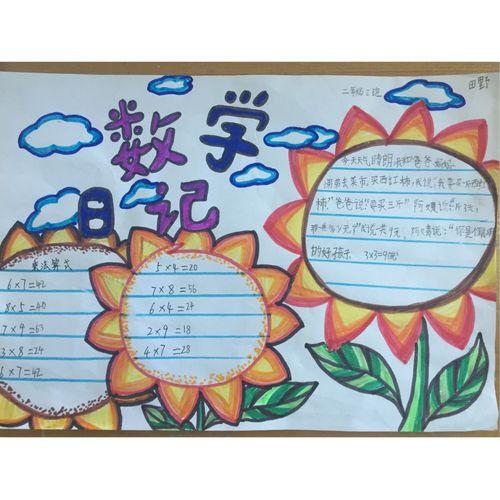 田野
二年级三班
数学
日记
今天天气晴朗,我和爸爸、妈妈、
弟弟去菜市,买西红柿,我说:"我要买西红
柿"爸爸说:"要买三斤"阿姨说:"1斤3元,
那一共多少元?"我说:"共9元,阿姨说:"你是个聪明
的好孩子。 3×3=9(元)
乘法算式
6×7=42
8×5=40
7×9=63
3×8=24
6×7=42
5×4=20
7×8=56
6×4=24
2×9=18
4×7=28